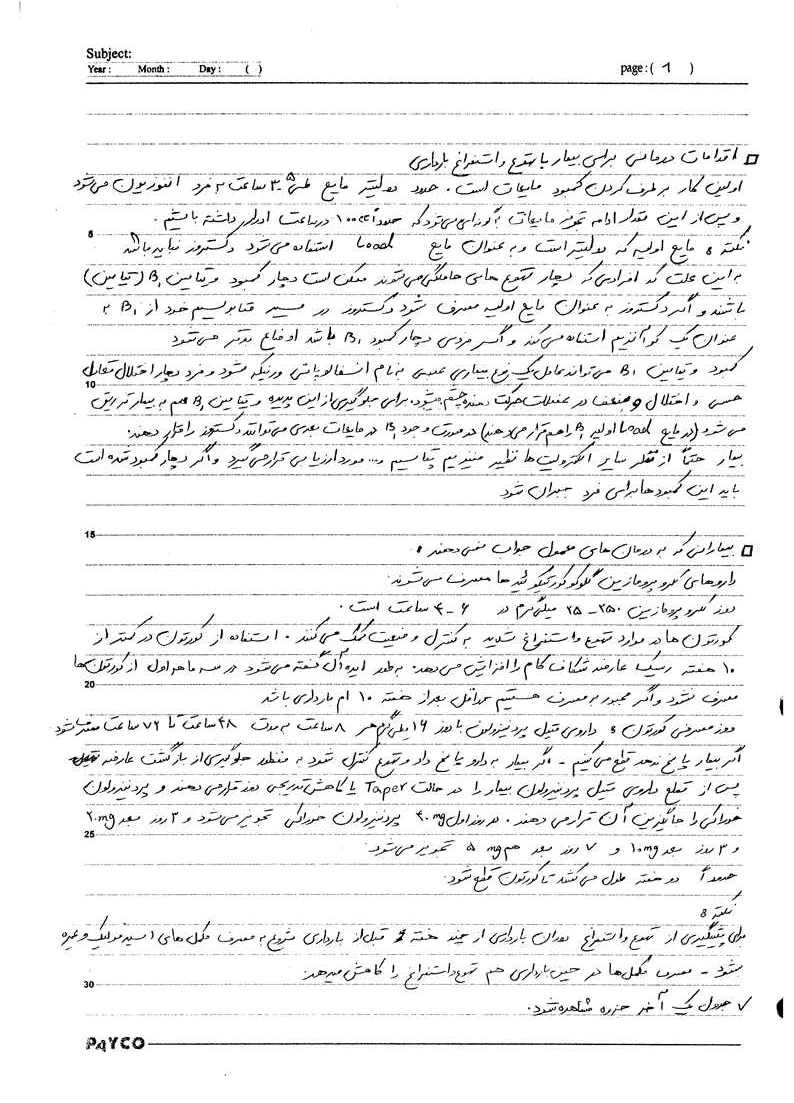 Subject:
Year: Month: Day: ( )
page: ( 1 )
اقدامات درمانی برای بیمار با تهوع و استفراغ بارداری
اولین کار برطرف کردن کمبود مایعات است. حدود دو لیتر مایع طی ۵-۳ ساعت به فرد انفوزیون می‌شود
و پس از این مقدار ادامه تجویز مایعات به گونه‌ای می‌شود که حدوداً ۱۰۰cc در ساعت ادرار داشته باشیم.
5
نکته: مایع اولیه که دو لیتر است و به عنوان مایع Load استفاده می‌شود دکستروز نباید باشد
به این علت که افرادی که دچار تهوع های حاملگی می‌شوند ممکن است دچار کمبود ویتامین B₁ (تیامین)
باشند و اگر دکستروز به عنوان مایع اولیه مصرف شود دکستروز در مسیر متابولیسم خود از B₁ به
عنوان یک کوآنزیم استفاده می‌کند و اگر فردی دچار کمبود B₁ باشد اوضاع بدتر می‌شود
کمبود ویتامین B₁ می‌تواند عامل یک نوع بیماری عصبی به نام انسفالوپاتی ورنیکه شود و فرد دچار اختلال تعادل
10
حسی و اختلال و ضعف در عضلات حرکت دهنده چشم می‌شود. برای جلوگیری از این پدیده ویتامین B₁ هم به بیمار تزریق
می شود (در مایع Load اولیه B₁ را هم قرار می‌دهند) در صورت وجود B₁ در مایعات بعدی می‌توانند دکستروز را قرار دهند.
بیمار حتماً از نظر سایر الکترولیت‌ها نظیر منیزیم پتاسیم و... مورد ارزیابی قرار می‌گیرد و اگر دچار کمبود شده است
باید این کمبودها برای فرد جبران شود
15
بیمارانی که به درمان های معمول جواب نمی‌دهند:
داروهای کلروپرومازین گلوکوکورتیکوئیدها مصرف می‌شوند.
دوز کلروپرومازین ۲۵۰-۲۵ میلی‌گرم در ۶-۴ ساعت است.
کورتون ها در موارد تهوع و استفراغ شدید به کنترل وضعیت کمک می‌کنند. استفاده از کورتون در کمتر از
۱۰ هفته ریسک عارضه شکاف کام را افزایش می‌دهد. به طور ایده‌آل گفته می‌شود در سه ماهه اول از کورتون‌ها
20
مصرف نشود و اگر مجبور به مصرف هستیم حداقل بعد از هفته ۱۰ ام بارداری باشد
دوز مصرفی کورتون: داروی متیل پردنیزولون با دوز ۱۶ میلی‌گرم هر ۸ ساعت به مدت ۴۸ ساعت تا ۷۲ ساعت مصرف شود
اگر بیمار پاسخ ندهد قطع می‌کنیم - اگر بیمار به دارو پاسخ داد و تهوع کنترل شود به منظور جلوگیری از بازگشت عارضه
پس از قطع داروی متیل پردنیزولون بیمار را در حالت Taper یا کاهش تدریجی دوز قرار می‌دهند و پردنیزولون
خوراکی را جایگزین آن قرار می دهند. در روز اول ۴۰mg پردنیزولون خوراکی تجویز می‌شود و ۳ روز بعد ۲۰mg
25
و ۳ روز بعد ۱۰mg و ۷ روز بعد هم ۵mg تجویز می‌شود.
حدوداً دو هفته طول می کشد تا کورتون قطع شود.
نکته:
برای پیشگیری از تهوع و استفراغ دوران بارداری از چند هفته قبل از بارداری شروع به مصرف مکمل های (اسید فولیک و غیره
شود - مصرف مکمل‌ها در حین بارداری هم تهوع و استفراغ را کاهش می‌دهد.
30
✓ جدول یک آخر جزوه مشاهده شود.
PAYCO